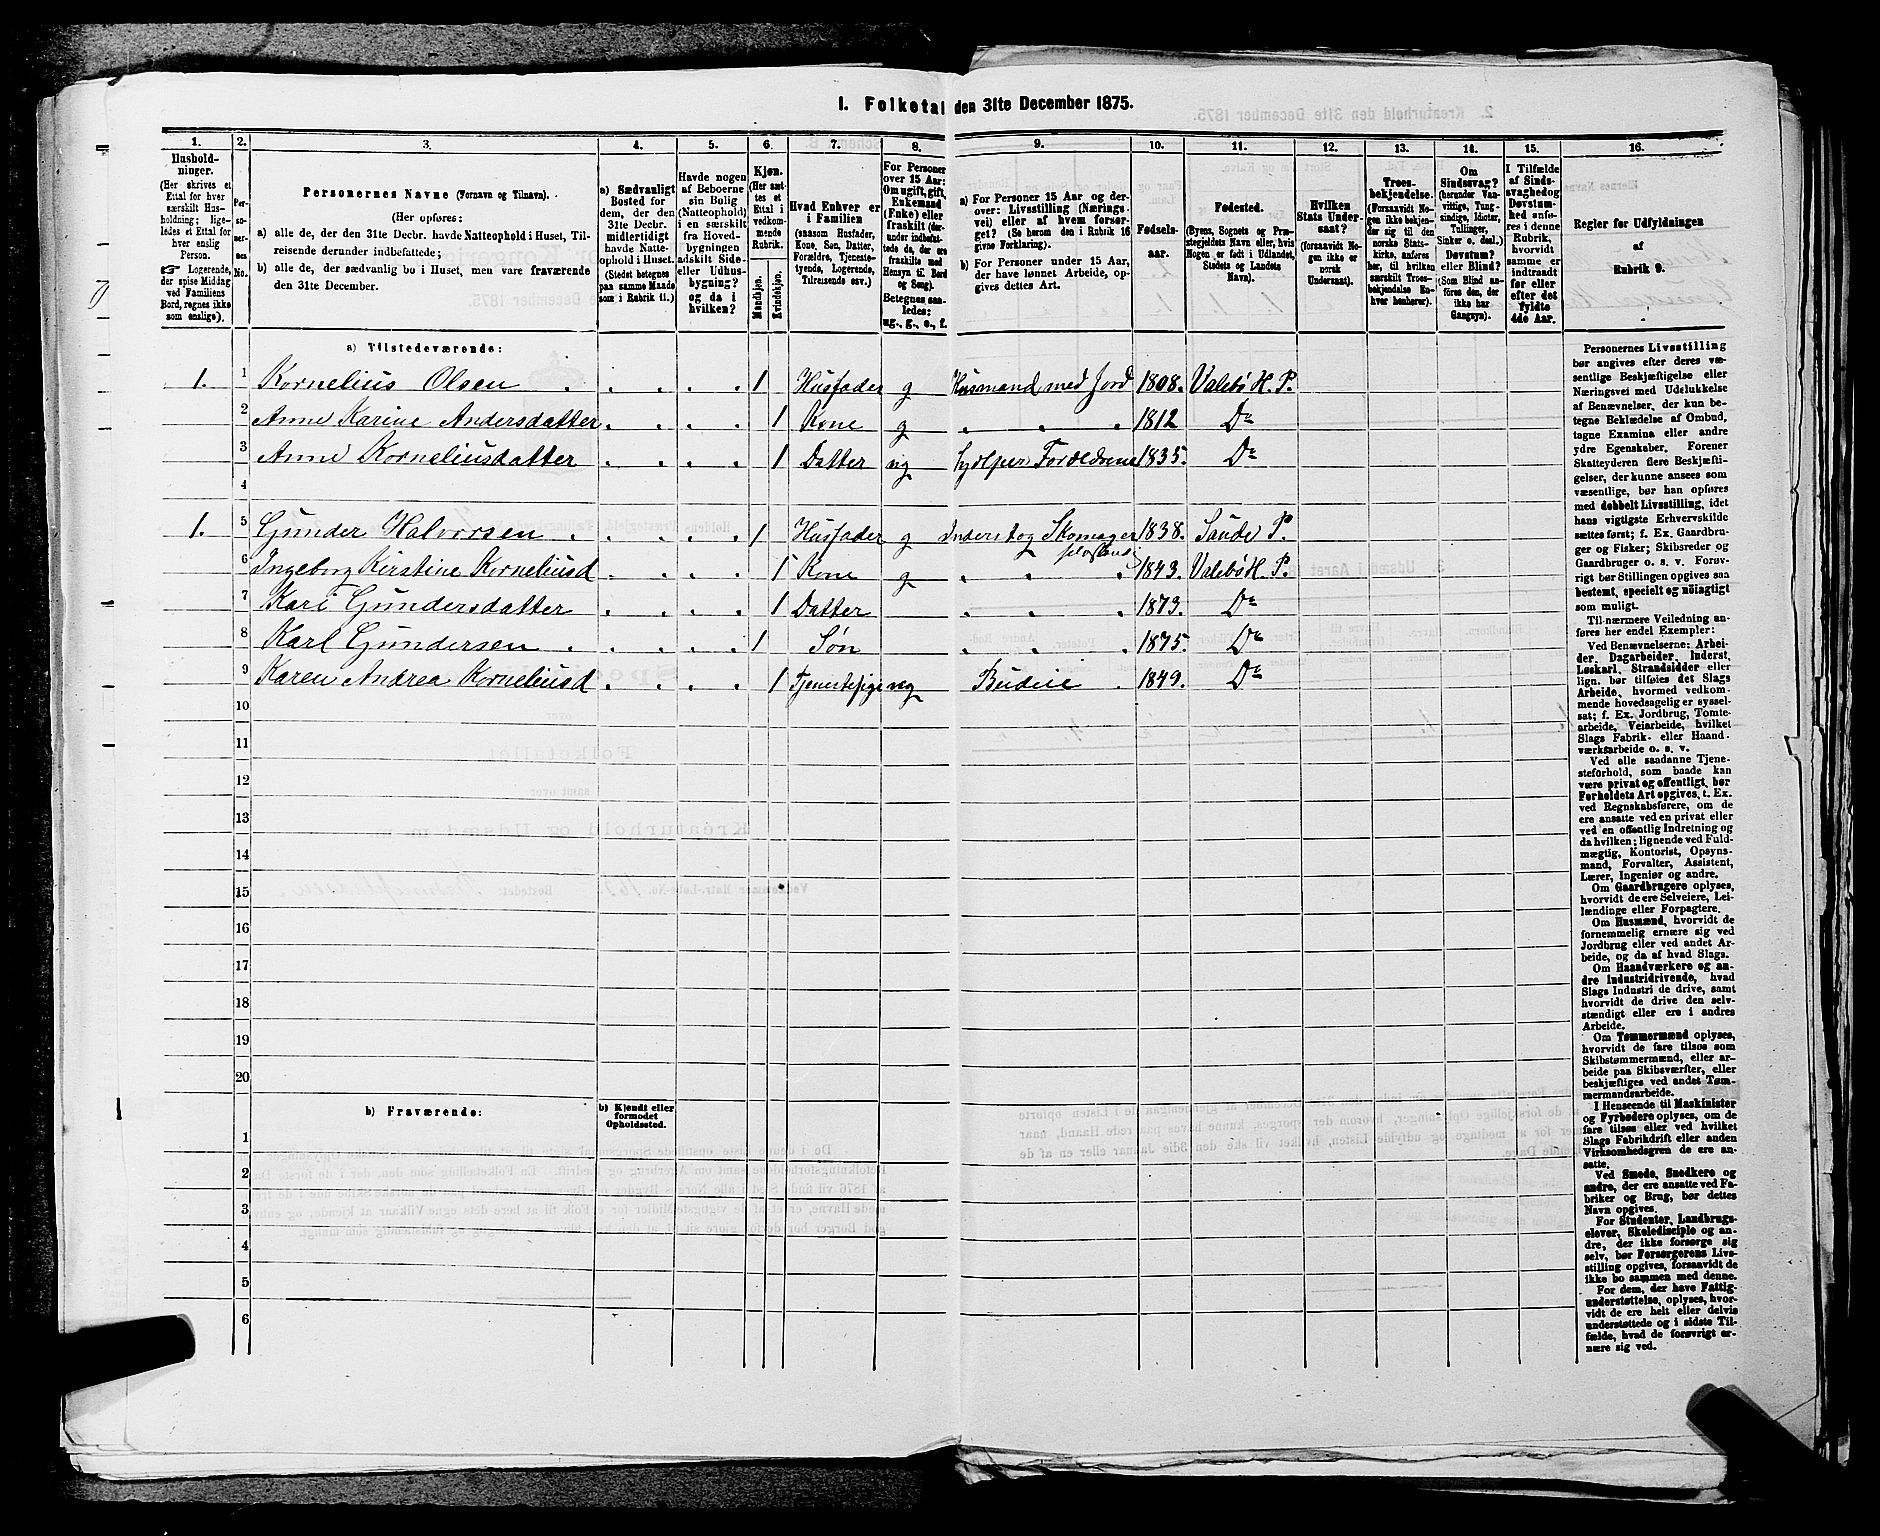 1. Folketal den 31te December 1875.
1. 2. 3. 4. 5. 6. 7. 8. 9. 10. 11. 12. 13. 14. 15. 16.
Hushold-
ninger.
(Her skrives et
Ettal for hver
særskilt Hus-
holdning; lige-
ledes et Ettal for
hver enslig
Person.
Logerende,
der spise Middag
ved Familiens
Bord, regnes ikke
som enslige).
Per-
so-
ner-
nes
No.
Personernes Navne (Fornavn og Tilnavn).
(Her opføres:
a) alle de, der den 31te Decbr. havde Natteophold i Huset, Til-
reisende derunder indbefattede;
b) alle de, der sædvanlig bo i Huset, men vare fraværende
den 31te December.
a) Sædvanligt
Bosted for
dem, der den
31te Decbr.
midlertidigt
havde Natte-
ophold i Huset.
(Stedet betegnes
paa samme Maade
som i Rubrik 11.)
Havde nogen
af Beboerne
sin Bolig
(Natteophold)
i en særskilt
fra Hoved-
bygningen
adskilt Side-
eller Udhus-
bygning?
og da i
hvilken?
Kjøn.
(Her sæt-
tes et
Ettal i
vedkom-
mende
Rubrik.
Mandkjøn.
Kvindekjøn.
Hvad Enhver er
i Familien
(saasom Husfader,
Kone, Søn, Datter,
Forældre, Tjeneste-
tyende, Logerende,
Tilreisende osv.)
For Personer
over 15 Aar:
Om ugift, gift,
Enkemand
(Enke) eller
fraskilt (der-
under indbefat-
tede de, der ere
fraskilte med
Hensyn til Bord
og Seng).
Betegnes saa-
ledes:
ug., g., e., f.
a) For Personer 15 Aar og der-
over: Livsstilling (Nærings-
vei) eller af hvem forsør-
get? (Se herom den i Rubrik 16
givne Forklaring).
b) For Personer under 15 Aar,
der have lønnet Arbeide, op-
gives dettes Art.
Fødsels-
aar.
Fødested.
(Byens, Sognets og Præ-
stegjeldets Navn eller, hvis
Nogen er født i Udlandet,
Stedets og Landets
Navn).
Hvilken
Stats Under-
saat?
(forsaavidt No-
gen ikke er
norsk
Undersaat).
Troes-
bekjendelse.
(Forsaavidt No-
gen ikke bekjen-
der sig til den
norske Stats-
kirke, anføres
her, til hvilken
særskilt Troes-
bekjendelse En-
hver henhører).
Om
Sindssvag?
(herunder Van-
vittige, Tung-
sindige, Idioter,
Tullinger,
Sinker o. desl.)
Døvstum?
eller Blind?
(Som Blind an-
føres den, der
ikke har
Gangsyn).
I Tilfælde
af Sinds-
svaghed og
Døvstum-
hed anfø-
res i denne
Rubrik,
hvorvidt
samme er
indtraadt
før eller
efter det
fyldte
4de Aar.
Regler for Udfyldningen
af
Rubrik 9.
a) Tilstedeværende:
1. 1 Kornelius Olsen 1 Husfader g Husmand med Jord 1808. Valebø H. P.
2 Anne Karine Andersdatter 1 Kone g 1812 Do
3 Anne Korneliusdatter 1 Datter ug hjælper Forældrene 1835. Do
4
1. 5 Gunder Halvorsen 1 Husfader g Inderst og Skomager 1838. Saude P.
selvstændi
6 Ingeborg Kirstine Korneliusd 1 Kone g 1843. Valebø H. P.
7 Kari Gundersdatter 1 Datter 1873. Do
8 Karl Gundersen 1 Søn 1875. Do
9 Karen Andrea Korneliusd 1 Tjenestepige ug Budeie 1849. Do
10
11
12
13
14
15
16
17
18
19
20
b) Fraværende:
b) Kjendt eller
formodet
Opholdssted.
1
2
3
4
5
6
Personernes Livsstilling
bør angives efter deres væ-
sentlige Beskjæftigelse eller
Næringsvei med Udelukkelse
af Benævnelser, der kun be-
tegne Beklædelse af Ombud,
tagne Examina eller andre
ydre Egenskaber. Forener
Skatteyderen flere Beskjæfti-
gelser, der kunne ansees som
væsentlige, bør han opføres
med dobbelt Livsstilling, idet
hans vigtigste Erhvervskilde
sættes først; f. Ex. Gaardbru-
ger og Fisker; Skibsreder og
Gaardbruger o. s. v. Forøv-
rigt bør Stillingen opgives saa
bestemt, specielt og nöiagtigt
som muligt.
Til nærmere Veiledning an-
føres her endel Exempler:
Ved Benævnelserne: Arbei-
der, Dagarbeider, Inderst,
Løskarl, Strandsidder eller
lign. bør tilføies det Slags
Arbeide, hvormed vedkom-
mende hovedsagelig er syssel-
sat; f. Ex. Jordbrug, Tomte-
arbeide, Veiarbeide, hvilket
Slags Fabrik- eller Haand-
værksarbeide o. s. v.
Ved alle saadanne Tjene-
steforhold, som baade kan
være privat og offentligt, bør
Forholdets Art opgives, t. Ex.
ved Regnskabsførere, om de
ere ansatte ved en privat eller
ved en offentlig Indretning og
da hvilken; lignende ved Fuld-
mægtig, Kontorist, Opsyns-
mand, Forvalter, Assistent,
Lærer, Ingeniør og andre.
Om Gaardbrugere oplyses,
hvorvidt de ere Selveiere, Lei-
lændinge eller Forpagtere.
Om Husmænd, hvorvidt de
fornemmelig ernære sig ved
Jordbrug eller ved andet Ar-
beide, og da af hvad Slags.
Om Haandværkere og an-
dre Industridrivende, hvad
Slags Industri de drive, samt
hvorvidt de drive den selv-
stændigt eller ere i andres
Arbeide.
Om Tømmermænd oplyses,
hvorvidt de fare tilsøs som
Skibstømmermænd, eller ar-
beide paa Skibsværfter, eller
beskjæftiges ved andet Tøm-
mermandsarbeide.
I Henseende til Maskinister
og Fyrbødere oplyses, om de
fare tilsøs eller ved hvilket
Slags Fabrikdrift eller anden
Virksomhedsgren de ere an-
satte.
Ved Smede, Snedkere og
andre, der ere ansatte ved Fa-
briker og Brug, bør dettes
Navn opgives.
For Studenter, Landbrugs-
elever, Skoledisciple og an-
dre, der ikke forsørge sig
selv, bør Forsørgerens Livs-
stilling opgives, forsaavidt de
ikke bo sammen med denne.
For dem, der have Fattig-
understøttelse, oplyses, hvor-
vidt de ere helt eller delvis
understøttede og i sidste Til-
fælde, hvad de forøvrigt er-
nære sig ved.